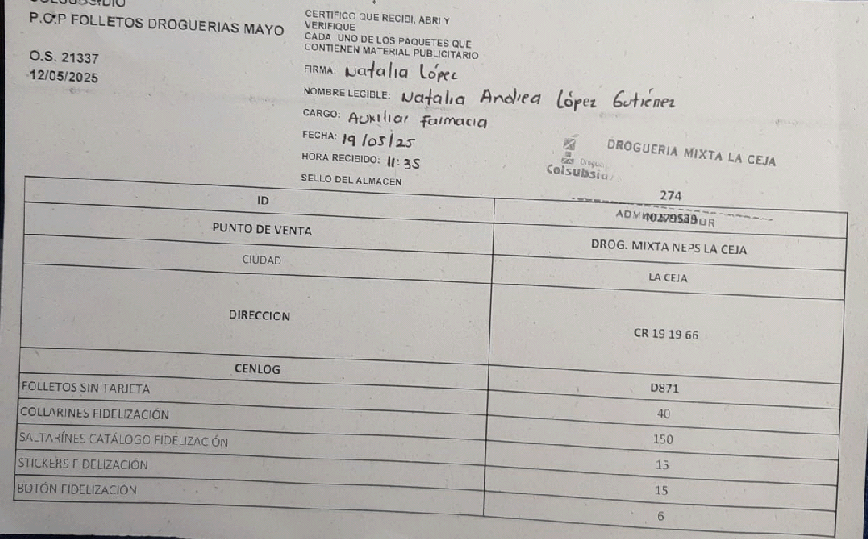 P.O.P FOLLETOS DROGUERIAS MAYO
O.S. 21337
12/05/2025
CERTIFICO QUE RECIBI, ABRI Y
VERIFIQUE
CADA UNO DE LOS PAQUETES QUE
CONTIENEN MATERIAL PUBLICITARIO
FIRMA: Natalia López
NOMBRE LEGIBLE: Natalia Andrea López Gutiérrez
CARGO: Auxiliar farmacia
FECHA: 19/05/25
HORA RECIBIDO: 11:35
SELLO DEL ALMACEN
DROGUERIA MIXTA LA CEJA
Colsubsidio
274
ID
PUNTO DE VENTA DROG. MIXTA NEPS LA CEJA
CIUDAD LA CEJA
DIRECCION CR 19 19 66
CENLOG
FOLLETOS SIN TARJETA D871
COLLARINES FIDELIZACIÓN 40
SALTARÍNES CATÁLOGO FIDELIZACIÓN 150
STICKERS FIDELIZACIÓN 15
BOTÓN FIDELIZACIÓN 15
6